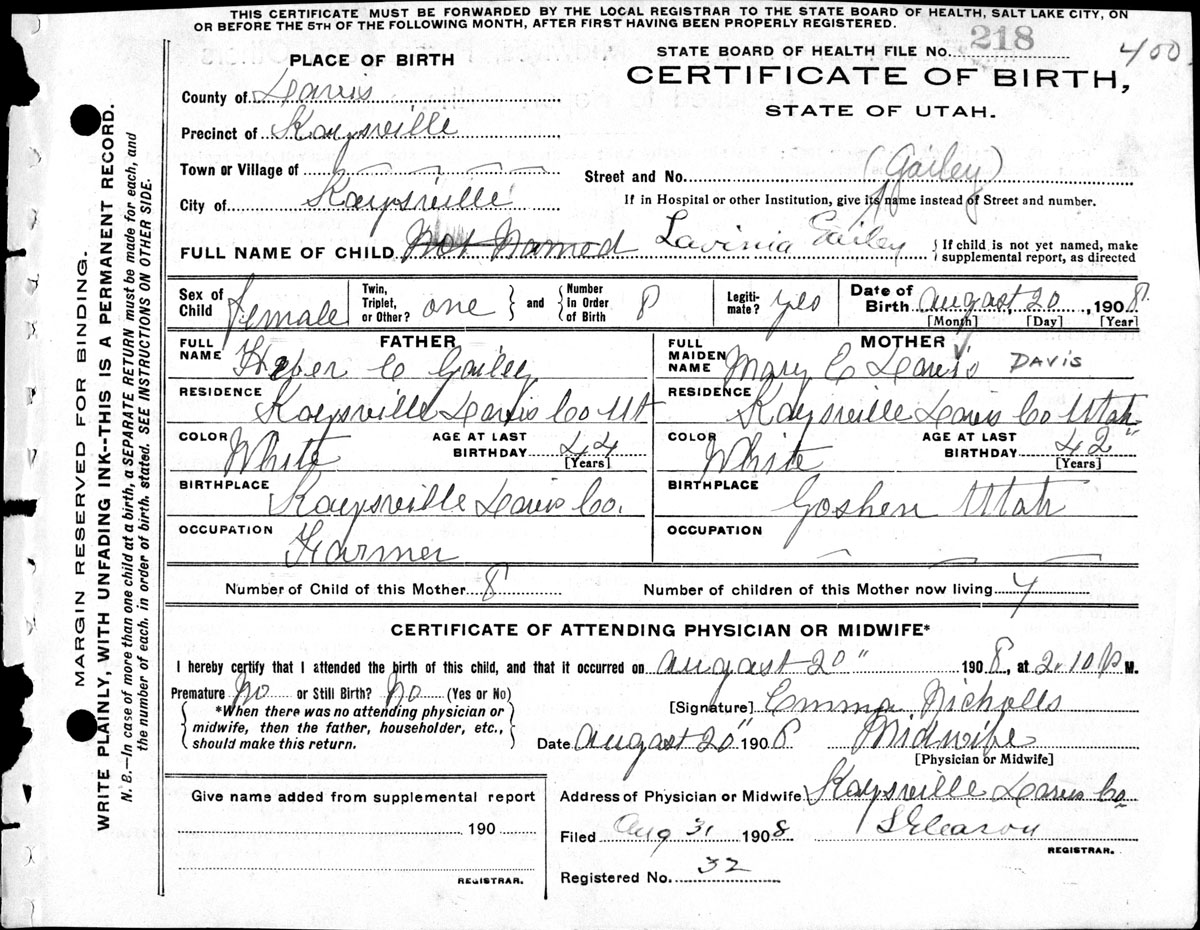 THIS CERTIFICATE MUST BE FORWARDED BY THE LOCAL REGISTRAR TO THE STATE BOARD OF HEALTH, SALT LAKE CITY, ON
OR BEFORE THE 5TH OF THE FOLLOWING MONTH, AFTER FIRST HAVING BEEN PROPERLY REGISTERED.
STATE BOARD OF HEALTH FILE No. 218 400
PLACE OF BIRTH
CERTIFICATE OF BIRTH,
STATE OF UTAH.
County of Davis
Precinct of Kaysville
Town or Village of
Street and No. (Gailey)
City of Kaysville
If in Hospital or other Institution, give its name instead of Street and number.
FULL NAME OF CHILD Not Named Lavinia Gailey { If child is not yet named, make supplemental report, as directed
Sex of Child female Twin, Triplet, or Other? one } and { Number in Order of Birth 8 Legiti-mate? yes Date of Birth august 20, 1908
[Month] [Day] [Year]
FATHER
FULL NAME Heber C Gailey
MOTHER
FULL MAIDEN NAME Mary E Davis DAVIS
RESIDENCE Kaysville Davis Co Ut
RESIDENCE Kaysville Davis Co Utah
COLOR White AGE AT LAST BIRTHDAY 44 [Years]
COLOR White AGE AT LAST BIRTHDAY 42 [Years]
BIRTHPLACE Kaysville Davis Co.
BIRTHPLACE Goshen Utah
OCCUPATION Farmer
OCCUPATION
Number of Child of this Mother 8 Number of children of this Mother now living 7
CERTIFICATE OF ATTENDING PHYSICIAN OR MIDWIFE*
I hereby certify that I attended the birth of this child, and that it occurred on august 20" 1908, at 2.10 P M.
Premature No or Still Birth? No (Yes or No)
[Signature] Emma Nicholls
*When there was no attending physician or
midwife, then the father, householder, etc.,
should make this return.
Date august 20" 1908 Midwife
[Physician or Midwife]
Give name added from supplemental report
190
REGISTRAR.
Address of Physician or Midwife Kaysville Davis Co
Filed Aug 31 1908 S Gleason
REGISTRAR.
Registered No. 32
MARGIN RESERVED FOR BINDING.
WRITE PLAINLY, WITH UNFADING INK--THIS IS A PERMANENT RECORD.
N. B.—In case of more than one child at a birth, a SEPARATE RETURN must be made for each, and
the number of each, in order of birth, stated. SEE INSTRUCTIONS ON OTHER SIDE.